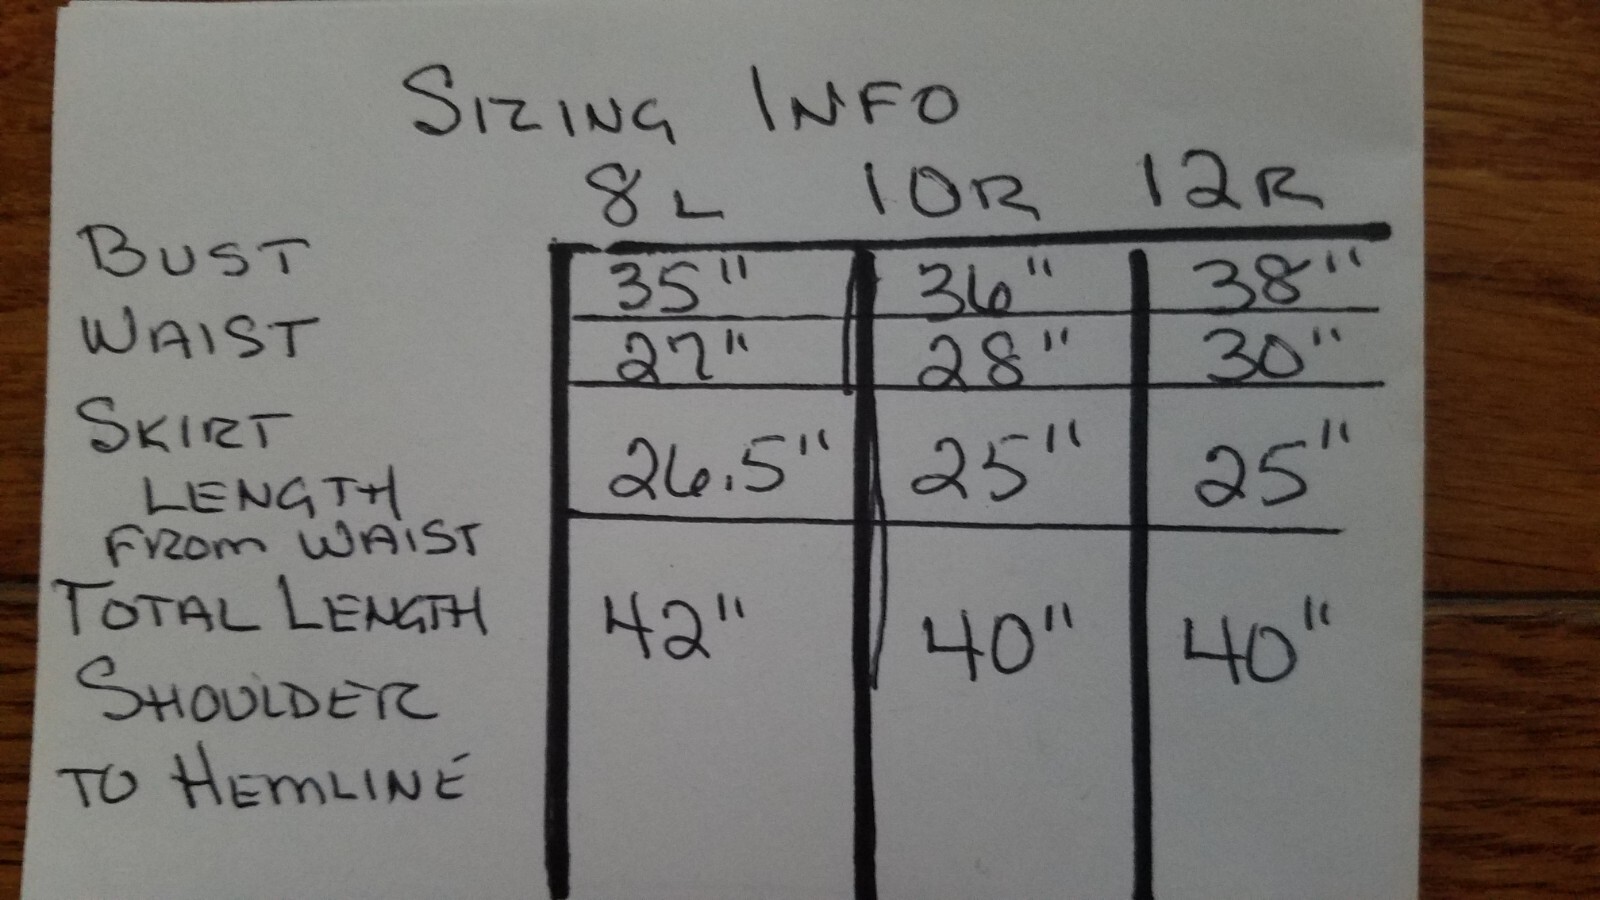 SIZING INFO
8L 10R 12R
BUST 35" 36" 38"
WAIST 27" 28" 30"
SKIRT
LENGTH 26.5" 25" 25"
FROM WAIST
TOTAL LENGTH 42" 40" 40"
SHOULDER
TO HEMLINE